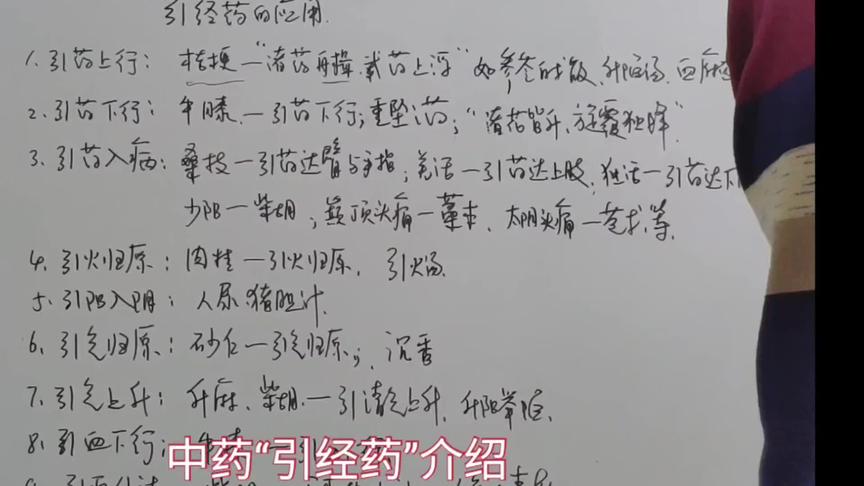 引经药的应用.
1. 引药上行: 桔梗—“诸药舟楫, 载药上浮” 如参苓白术散、升陷汤、血府逐
2. 引药下行: 牛膝.—引药下行; 重坠药; “诸花皆升, 旋覆独降”
3. 引药入病: 桑枝—引药达臂与手指; 羌活—引药达上肢, 独活—引药达下
少阳—柴胡; 巅顶头痛—藁本、太阴头痛—苍术, 等.
4. 引火归原: 肉桂—引火归原. 引火汤.
5. 引阳入阴: 人尿 猪胆汁.
6. 引气归原: 砂仁—引气归原; 沉香
7. 引气上升: 升麻、柴胡.—引清气上升、升阳举陷.
8. 引血下行: 牛膝
中药“引经药”介绍